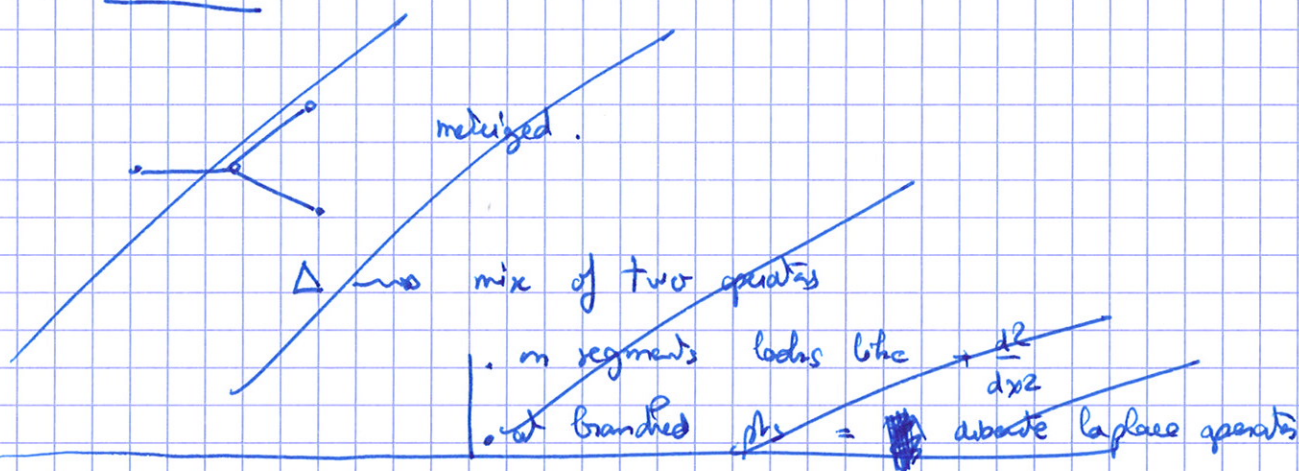 metrized .
Δ ⇝ mix of two operators
. on segments looks like + d²/dx²
. at branched pts = discrete laplace operators